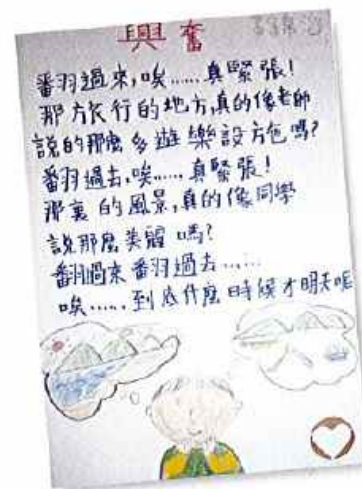 興奮
翻過來,唉……真緊張!
那方旅行的地方,真的像老師
說的那麼多遊樂設方包嗎?
翻過去,唉……真緊張!
那裏的風景,真的像同學
說那麼美麗嗎?
翻過來翻過去……
唉……到底什麼時候才明天呢